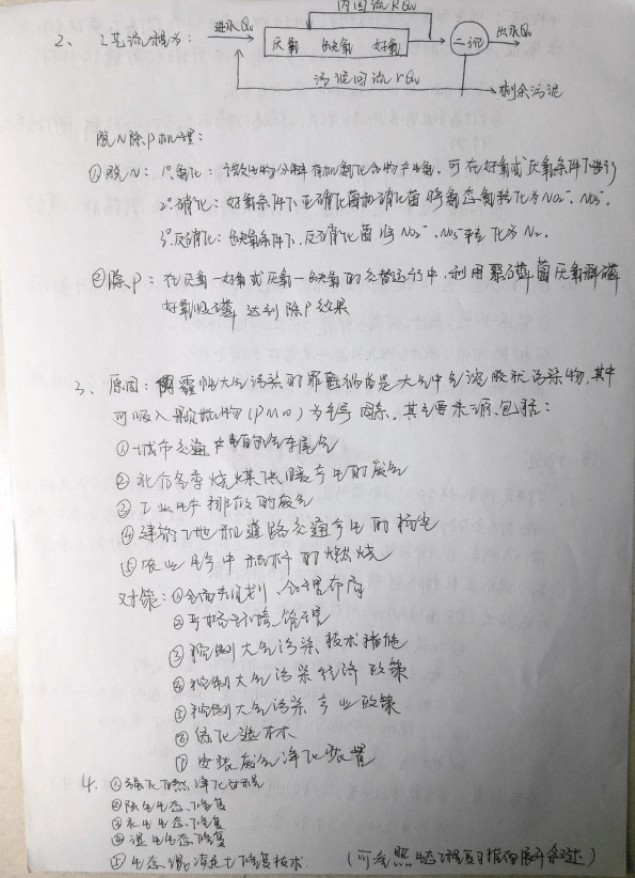 内回流RQv
2、工艺流程为: 进水Qv 厌氧 缺氧 好氧 二沉 出水Qv
污泥回流rQv 剩余污泥
脱N除P机理:
①脱N: 1°氨化: 微生物分解有机氮化合物产生氨, 可在好氧或厌氧条件下进行
2°硝化: 好氧条件下, 亚硝化菌和硝化菌将氨态氮转化为NO₂⁻、NO₃⁻.
3°反硝化: 缺氧条件下, 反硝化菌将NO₂⁻、NO₃⁻转化为N₂.
②除P: 在厌氧—好氧或厌氧—缺氧的交替运行中, 利用聚磷菌厌氧释磷
好氧吸磷 达到除P效果
3、原因: 阴霾性大气污染的罪魁祸首是大气中气溶胶状污染物, 其中
可吸入颗粒物(PM10)为主导因素. 其主要来源包括:
①城市交通产生的汽车尾气
②北方冬季烧煤供暖产生的废气
③工业生产排放的废气
④建筑工地和道路交通产生的扬尘
⑤农业生产中秸秆的燃烧
对策: ①全面规划、合理布局
②严格环境管理
③控制大气污染技术措施
④控制大气污染经济政策
⑤控制大气污染产业政策
⑥绿化造林
⑦安装废气净化装置
4. ①强化自然净化
②陆生生态修复
③水生生态修复
④湿生生态修复
⑤生态混凝土修复技术. (可参照生态工程复习指南展开叙述)